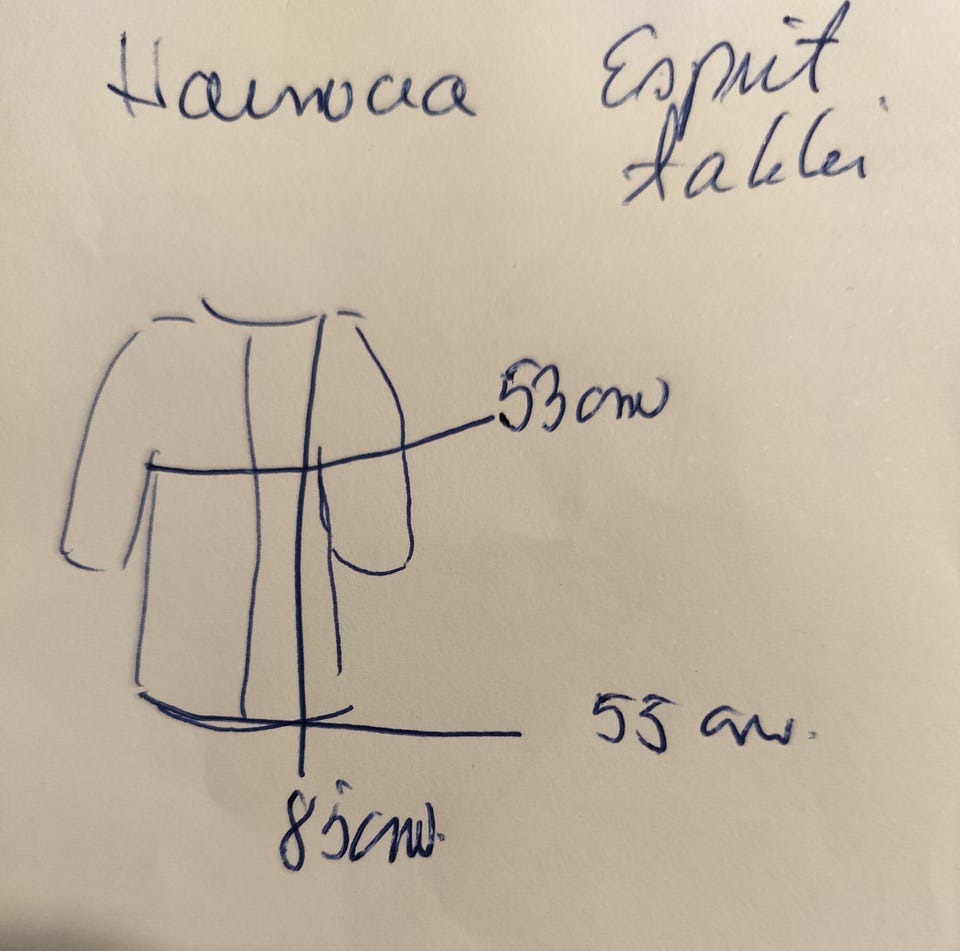 Harmaa Esprit
takki
53 cm
55 cm.
85 cm.